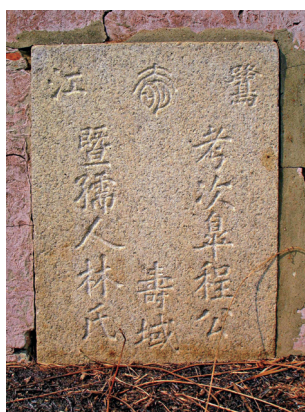 鷺江
考次皐程公
壽域
暨孺人林氏